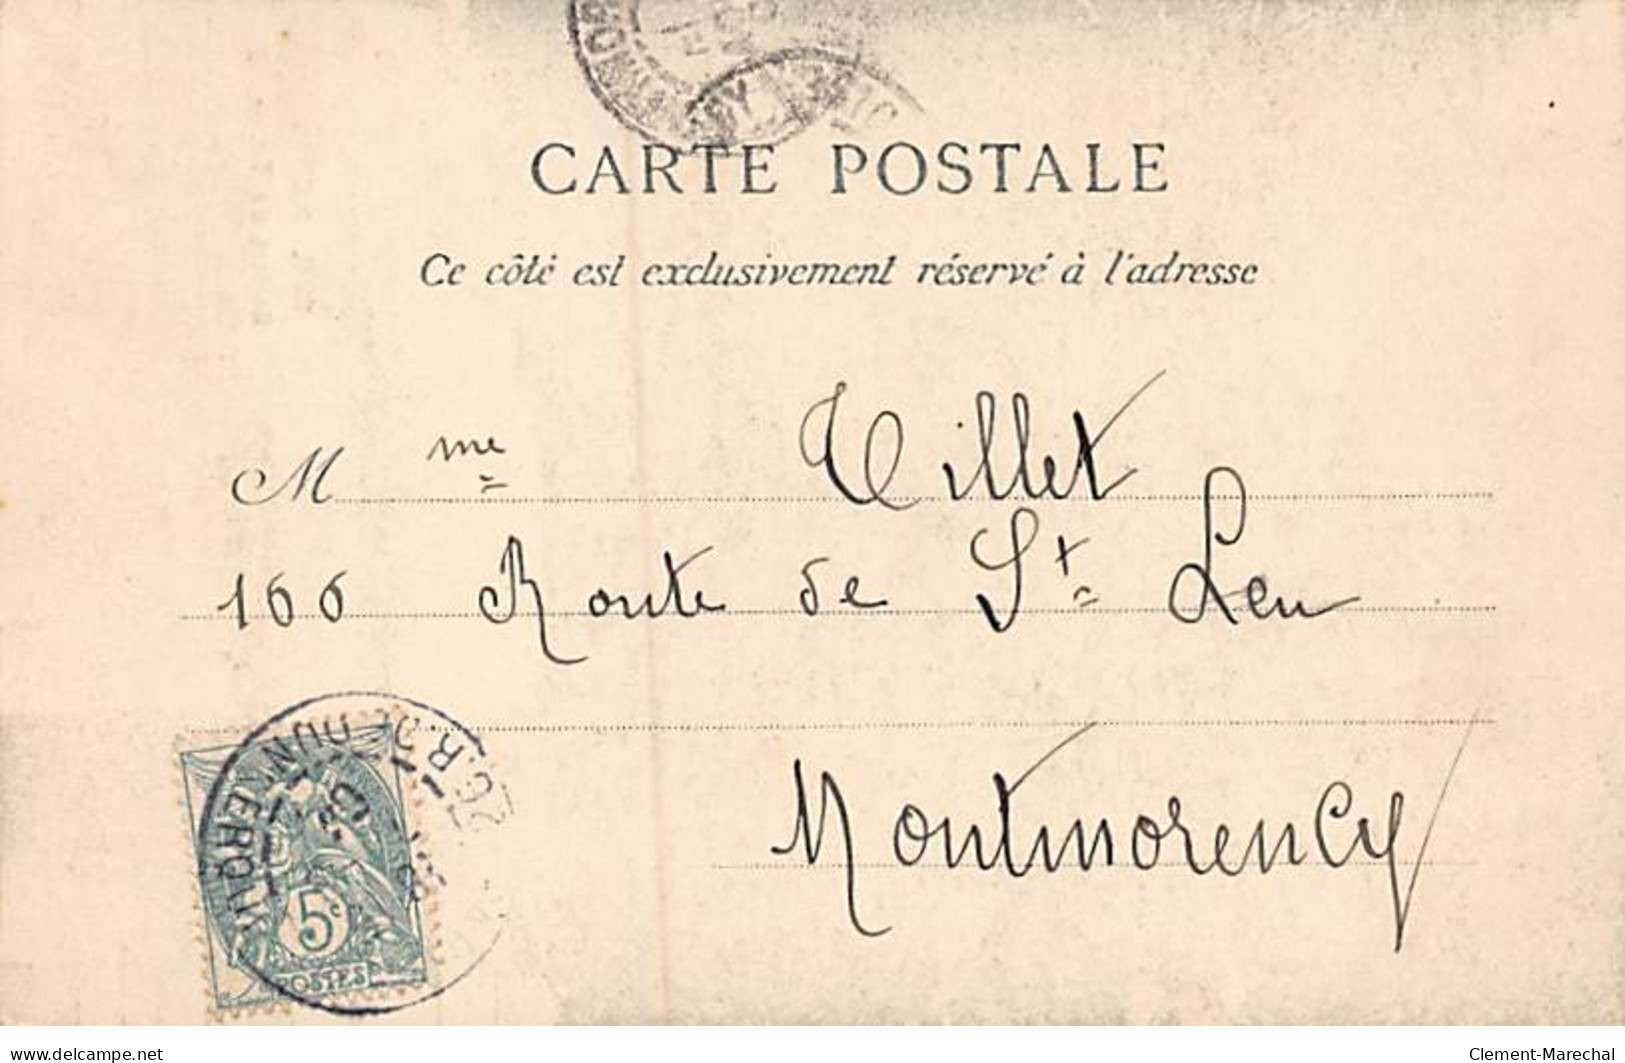 CARTE POSTALE
Ce côté est exclusivement réservé à l'adresse
M me Tillet
166 Route de St Leu
Montmorency
DUNKERQUE
5c
POSTES
www.delcampe.net
Clement-Marechal